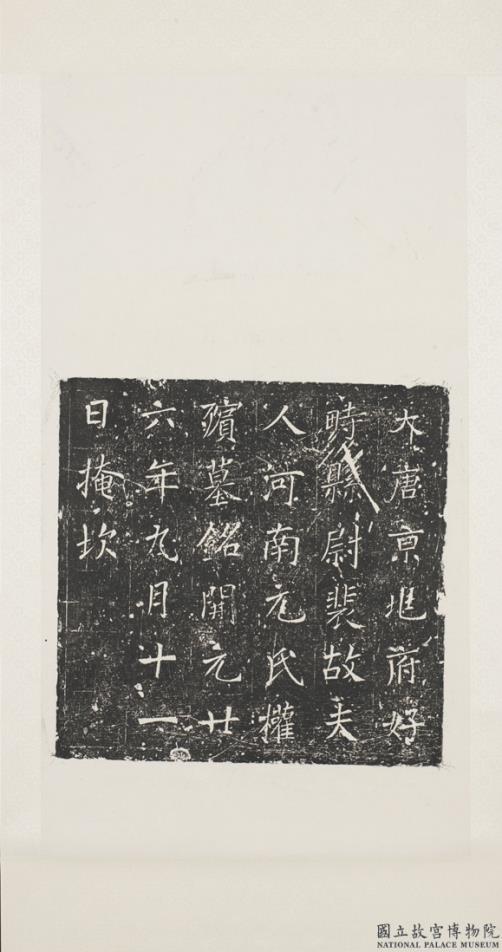 大唐京兆府好
畤縣尉裴故夫
人河南元氏權
殯墓銘開元廿
六年九月十一
日掩坎
國立故宮博物院
NATIONAL PALACE MUSEUM